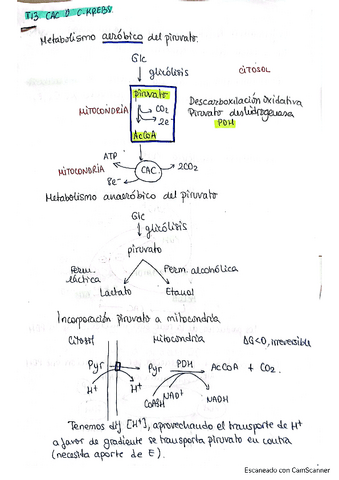 T13 CAC O C. KREBS
Metabolismo aeróbico del piruvato.
Glc
glicólisis
CITOSOL
piruvato
MITOCONDRIA
CO2
2e-
AcCoA
Descarboxilación Oxidativa
Piruvato deshidrogenasa
PDH
ATP
MITOCONDRIA
CAC
2CO2
8e-
Metabolismo anaeróbico del piruvato
Glc
glicólisis
piruvato
Ferm. láctica
Ferm. alcohólica
Lactato
Etanol
Incorporación piruvato a mitocondria
Citosol
Mitocondria
ΔG<0, irreversible
Pyr
Pyr
PDH
AcCoA + CO2.
H+
H+
CoASH
NAD+
NADH
Tenemos [H+], aprovechando el transporte de H+
a favor de gradiente se transporta piruvato en contra
(necesita aporte de E).
Escaneado con CamScanner